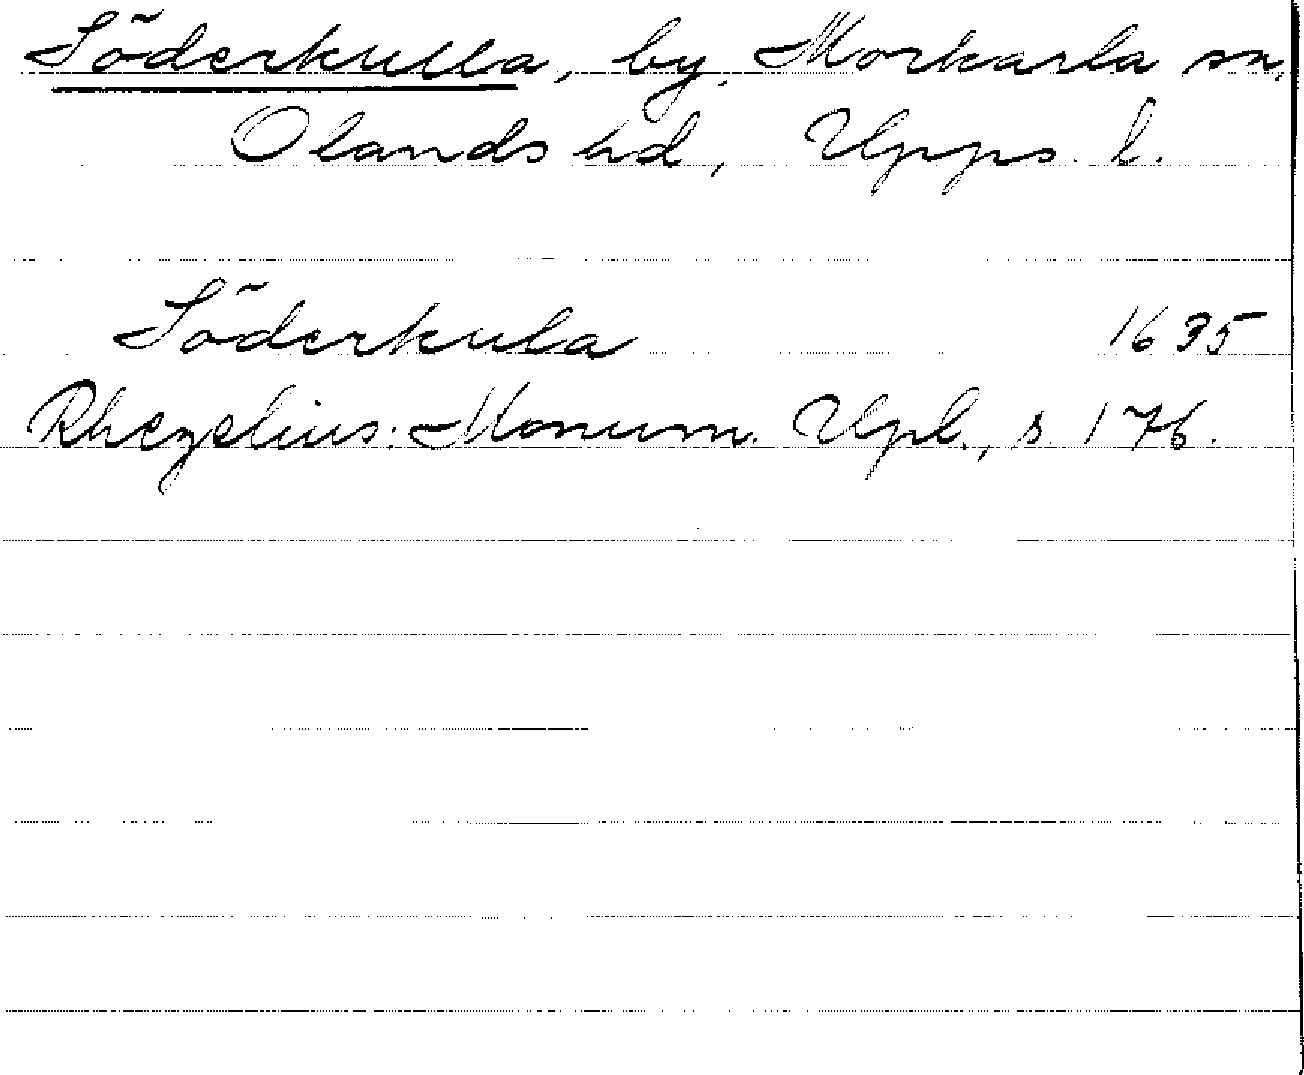 Söderkulla, by, Morkarla sn,
Olands hd, Upps. l.
Söderkula 1635
Rhezelius: Monum. Upl., s. 176.